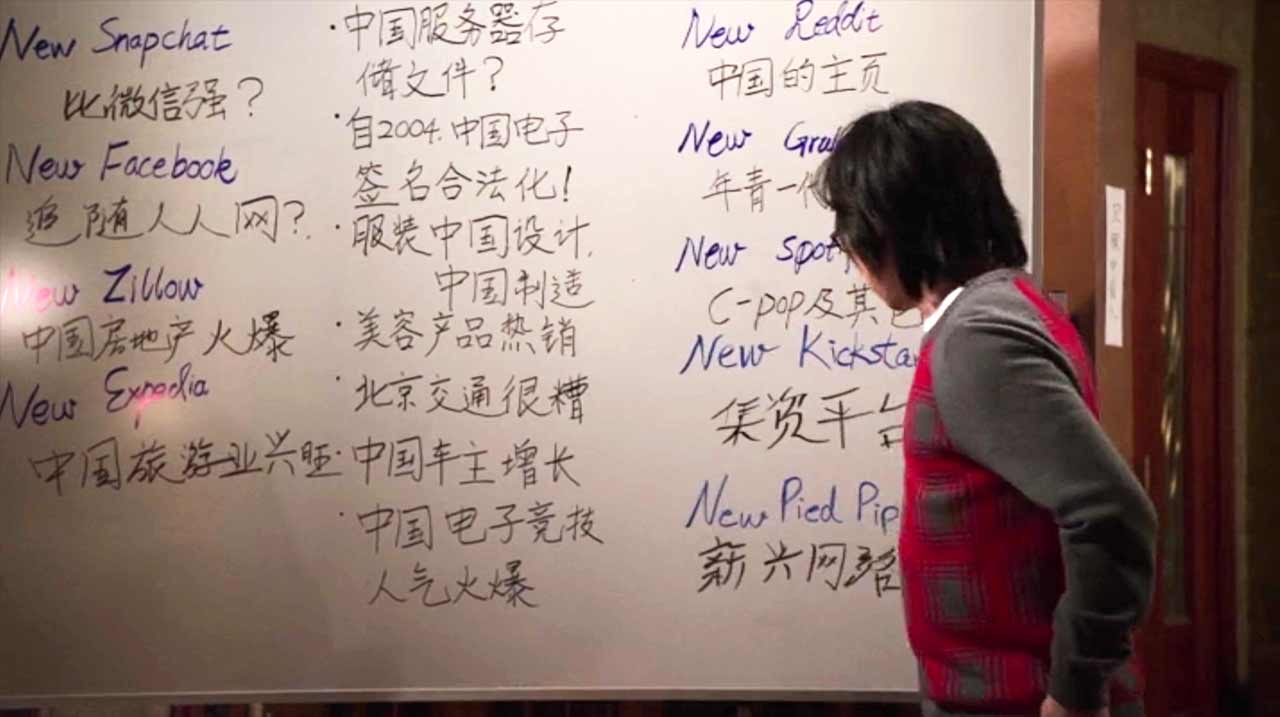 New Snapchat
比微信强？
New Facebook
追随人人网？
New Zillow
中国房地产火爆
New Expedia
中国旅游业兴旺
·中国服务器存
储文件？
·自2004.中国电子
签名合法化！
·服装中国设计.
中国制造
·美容产品热销
·北京交通很糟
·中国车主增长
·中国电子竞技
人气火爆
New Reddit
中国的主页
New
年青一代
New Spotif
C-pop及其它
New Kickstar
集资平台
New Pied Pip
新兴网路